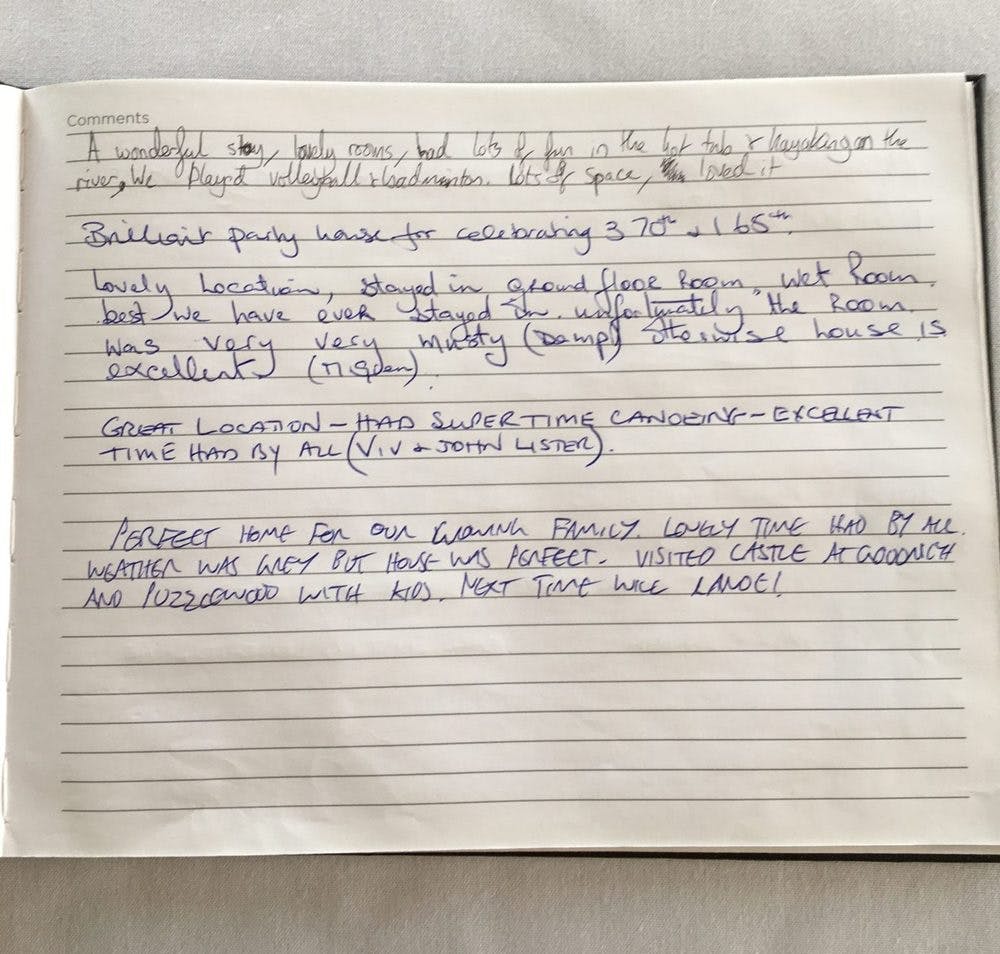 Comments
A wonderful stay, lovely rooms, had lots of fun in the hot tub & kayaking on the
river, We played volleyball & badminton. lots of space, loved it
Brilliant party house for celebrating 3 70th & 1 65th.
Lovely Location, stayed in ground floor Room, Wet Room.
best we have ever stayed in. unfortunately the Room.
was very very musty (Damp) otherwise house is
excellent
GREAT LOCATION - HAD SUPER TIME CANOEING - EXCELLENT
TIME HAD BY ALL (VIV & JOHN LISTER).
PERFECT HOME FOR OUR GROWING FAMILY. LOVELY TIME HAD BY ALL.
WEATHER WAS GREY BUT HOUSE WAS PERFECT. VISITED CASTLE AT GOODRICH
AND PUZZLEWOOD WITH KIDS. NEXT TIME WILL CANOE!